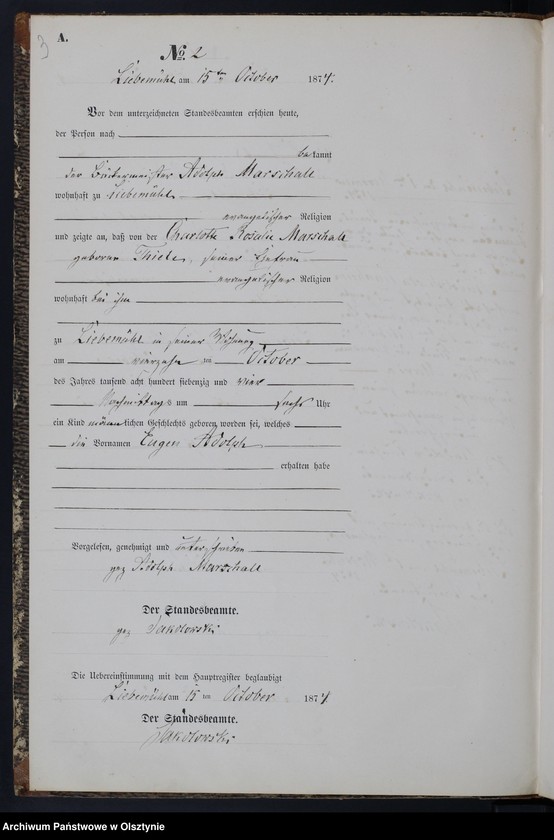 3
A.
No. 2
Liebemühl am 15ten October 1874.
Vor dem unterzeichneten Standesbeamten erschien heute,
der Person nach
bekannt
der Bäckermeister Adolph Marschall
wohnhaft zu Liebemühl
evangelischer Religion
und zeigte an, daß von der Charlotte Rosalie Marschall
geborenen Thiele, seiner Ehefrau
evangelischer Religion
wohnhaft bei ihm
zu Liebemühl in seiner Wohnung
am vierzehn ten October
des Jahres tausend acht hundert siebenzig und vier
Nachmittags um sechs Uhr
ein Kind männlichen Geschlechts geboren worden sei, welches
die Vornamen Eugen Adolph
erhalten habe
Vorgelesen, genehmigt und unterschrieben
gez Adolph Marschall
Der Standesbeamte.
gez Sakolowski
Die Uebereinstimmung mit dem Hauptregister beglaubigt
Liebemühl am 15 ten October 1874.
Der Standesbeamte.
Sakolowski
Archiwum Państwowe w Olsztynie